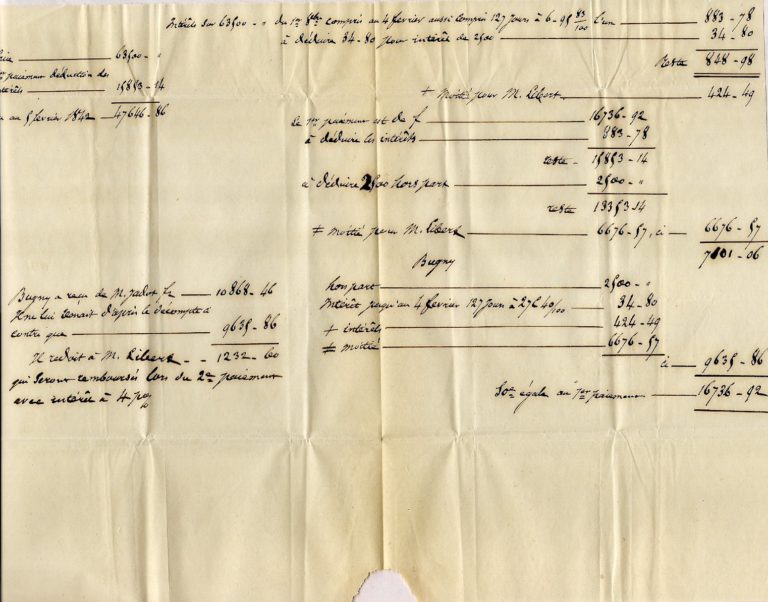 Intérêts sur 63500 - " du 1er 8bre compris au 4 février aussi compris 127 jours à 6-95 83/100 l'un — 883-78
à déduire 34-80 pour intérêt de 2500 — 34-80
Reste 848-98
+ Moitié pour M. Libert — 424-49
63500 - "
paiement déduction des
intérêts — 15853-14
au 5 février 1842 — 47646-86
Le 1er paiement est de f — 16736-92
à déduire les intérêts — 883-78
reste - 15853-14
à déduire 2500 hors part — 2500 - "
reste 13353-14
‡ moitié pour M. Libert — 6676-57, ci - 6676-57
7101-06
Bugny
hors part — 2500 - "
Intérêt jusqu'au 4 février 127 jours à 27c 40/100 — 34-80
+ intérêts — 424-49
‡ moitié — 6676-57
ci - 9635-86
Soe égale au 1er paiement — 16736-92
Bugny a reçu de M. Jadot fr — 10868-46
Il ne lui tenait d'après le décompte ci
contre que — 9635-86
Il redoit à M. Libert - - 1232-60
qui seront remboursés lors du 2e paiement
avec intérêt à 4 p%